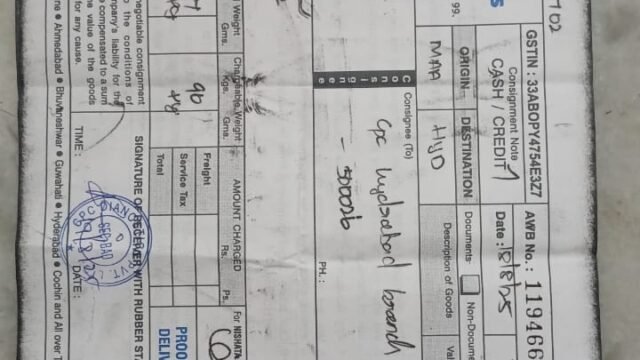 702
S
99.
GSTIN : 33ABOPY4754E3Z7
AWB No. : 119466
Consignment Note
CASH / CREDIT
Date : 18/8/25
ORIGIN
DESTINATION
Documents
Non-Docume
MAA
HYD
Description of Goods
Val
Consignee
Consignee (To)
CPC hyderabad branch
- 500026
PH. :
Weight
Gms.
Chargeable Weight
Kgs.
Gms.
90
kg
AMOUNT CHARGED
Rs.
Ps.
Freight
Service Tax
Total
For NISHATA
PROO
DELIV
negotiable consignment
o the conditions of
mpany's liability for the
e compensated to a sum
the value of the goods
for any cause.
SIGNATURE OF RECEIVER WITH RUBBER STA
TIME :
DATE :
ne ● Ahmedabad ● Bhuvaneshwar ● Guwahati ● Hyderabad ● Cochin and All over